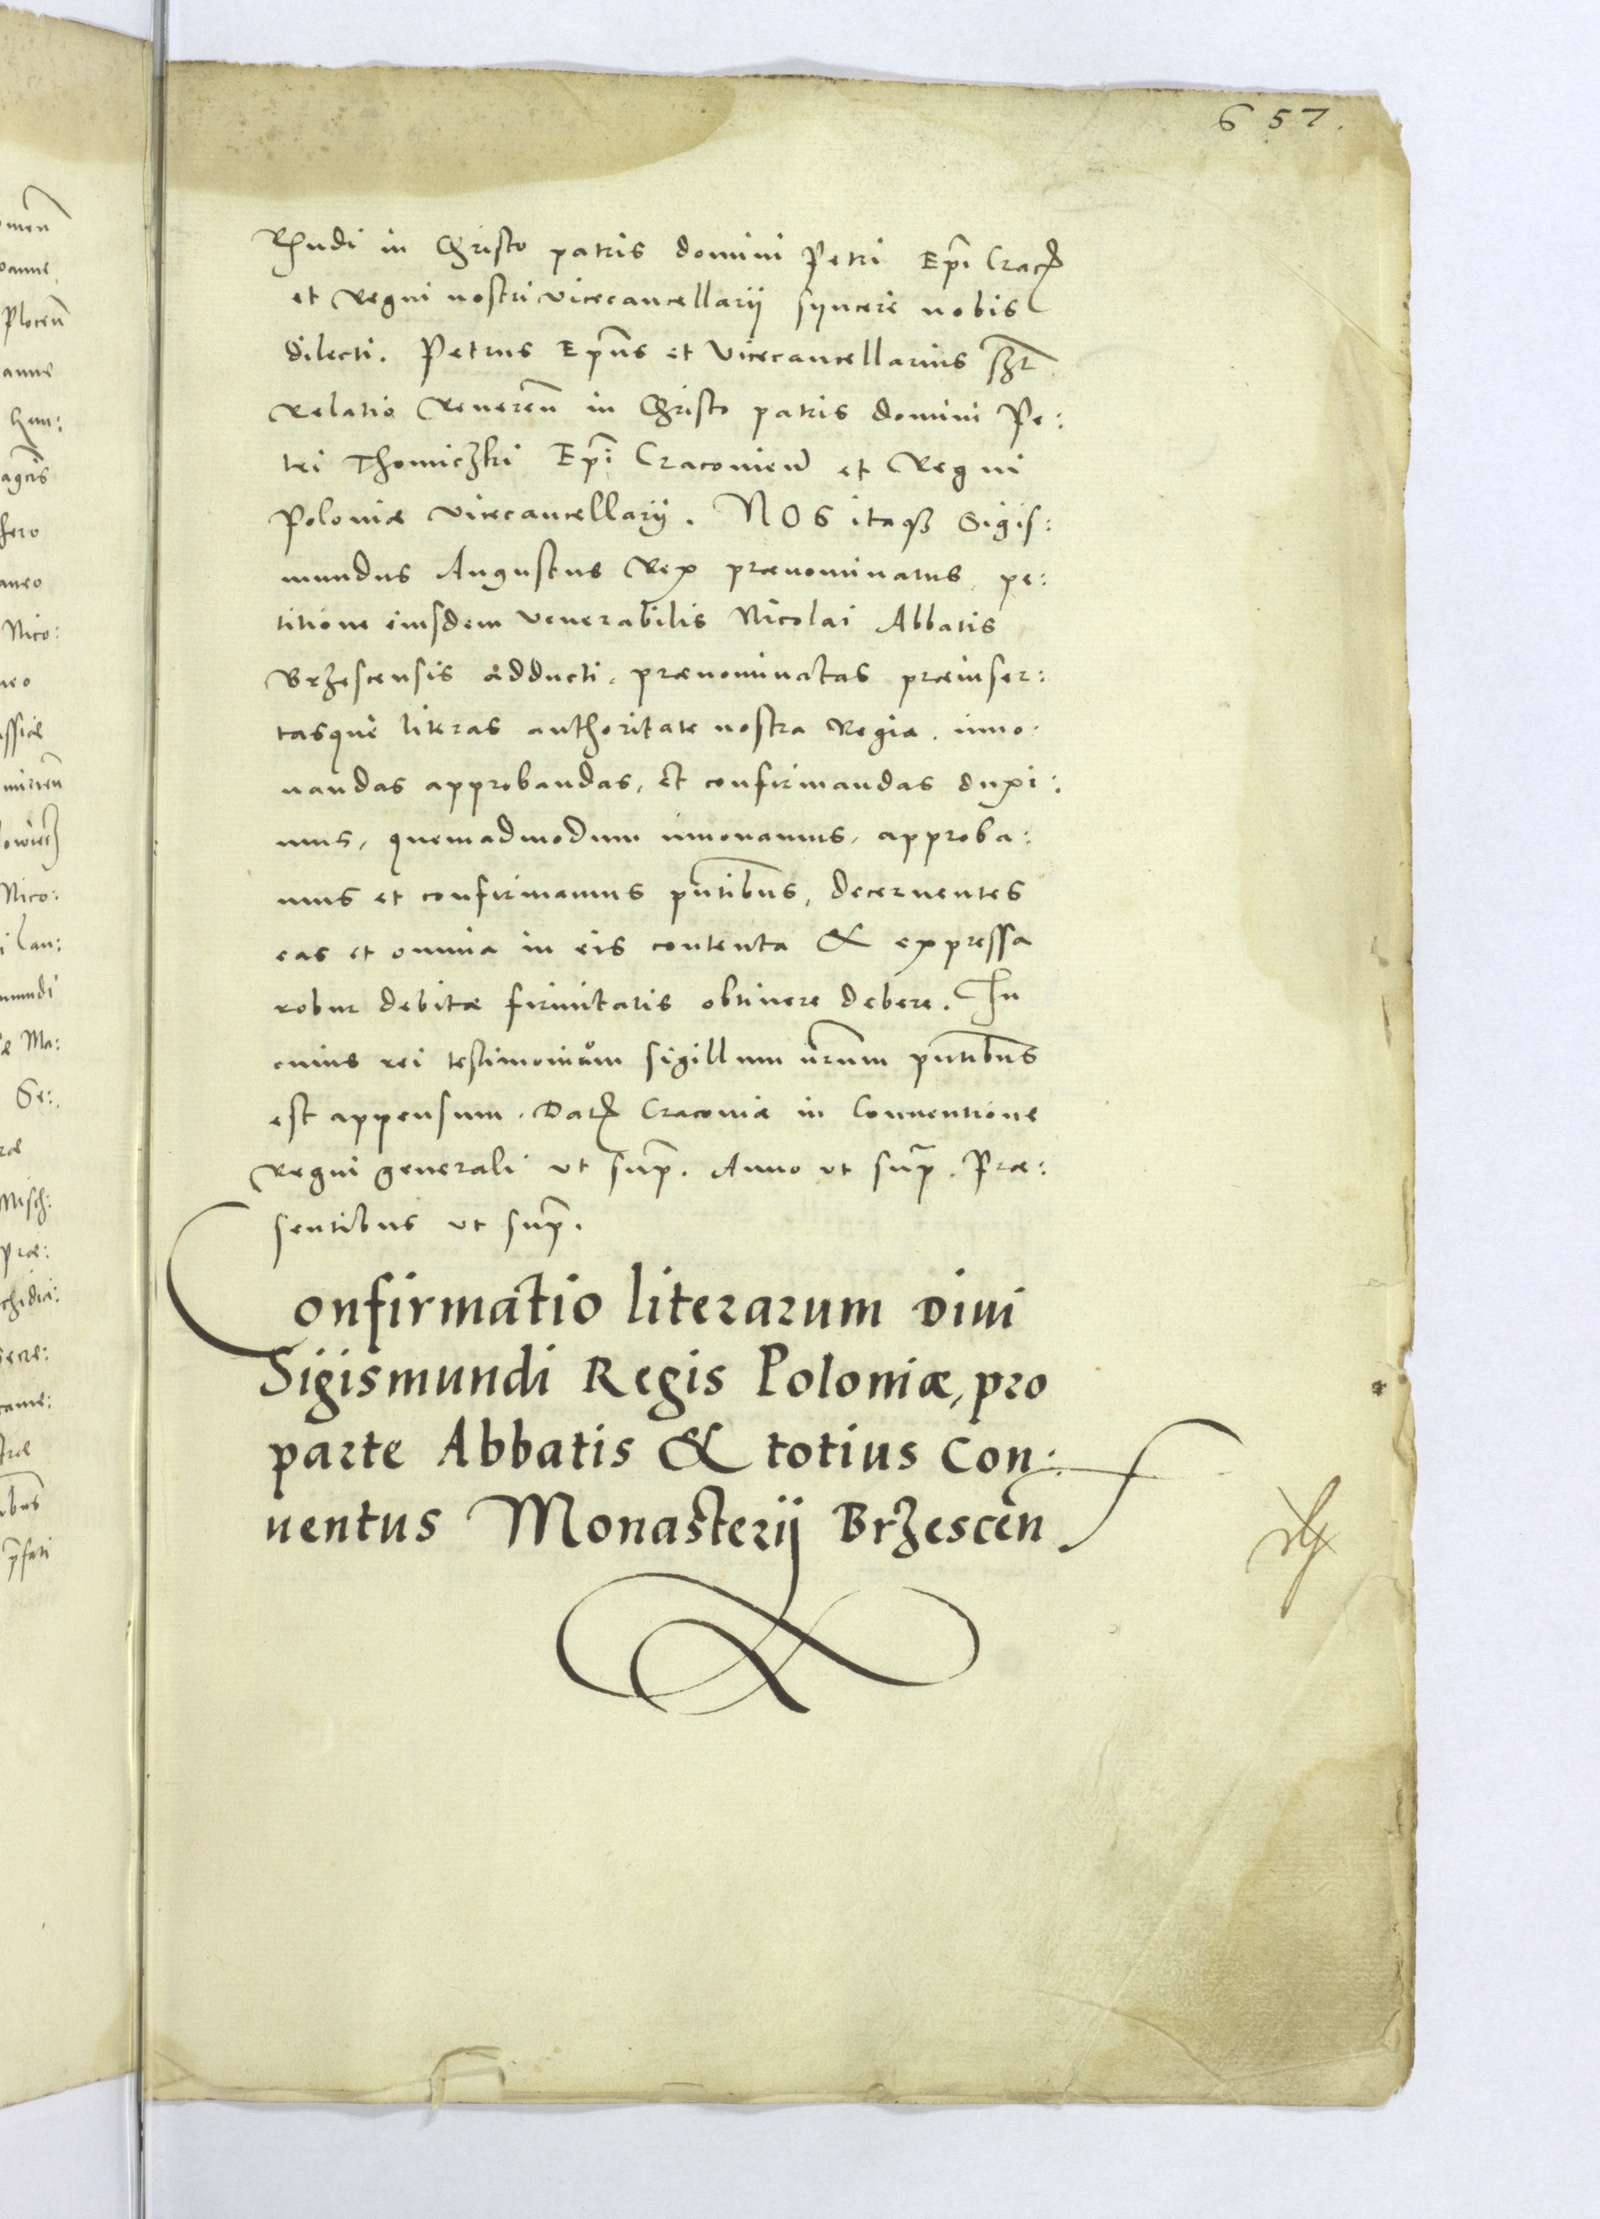 657.
Rhndi in Christo patris domini Petri Epi Crac
et Regni nostri vicecancellarij syncere nobis
dilecti. Petrus Epus et Vicecancellarius sszt
Relatio Reveren in Christo patris domini Pe:
tri Thomiczki Epi Cracovien et Regni
Poloniæ vicecancellarij. NOS itaqz Sigis:
mundus Augustus Rex prænominatus, pe:
titione eiusdem venerabilis Nicolai Abbatis
Brzescensis adducti, prænominatas præinser:
tasque literas authoritate nostra Regia, inno:
uandas approbandas, et confirmandas duxi:
mus, quemadmodum innouamus, approba:
mus et confirmamus pntibus, decernentes
eas et omnia in eis contenta & expressa
robur debitæ firmitatis obtinere debere. In
cuius rei testimonium sigillum nrum pntibus
est appensum. Dat Cracoviæ in Conuentione
Regni generali ut sup. Anno ut sup. Præ:
sentibus ut sup.
Confirmatio literarum Diui
Sigismundi Regis Poloniæ, pro
parte Abbatis & totius Con:
uentus Monasterij Brzescen